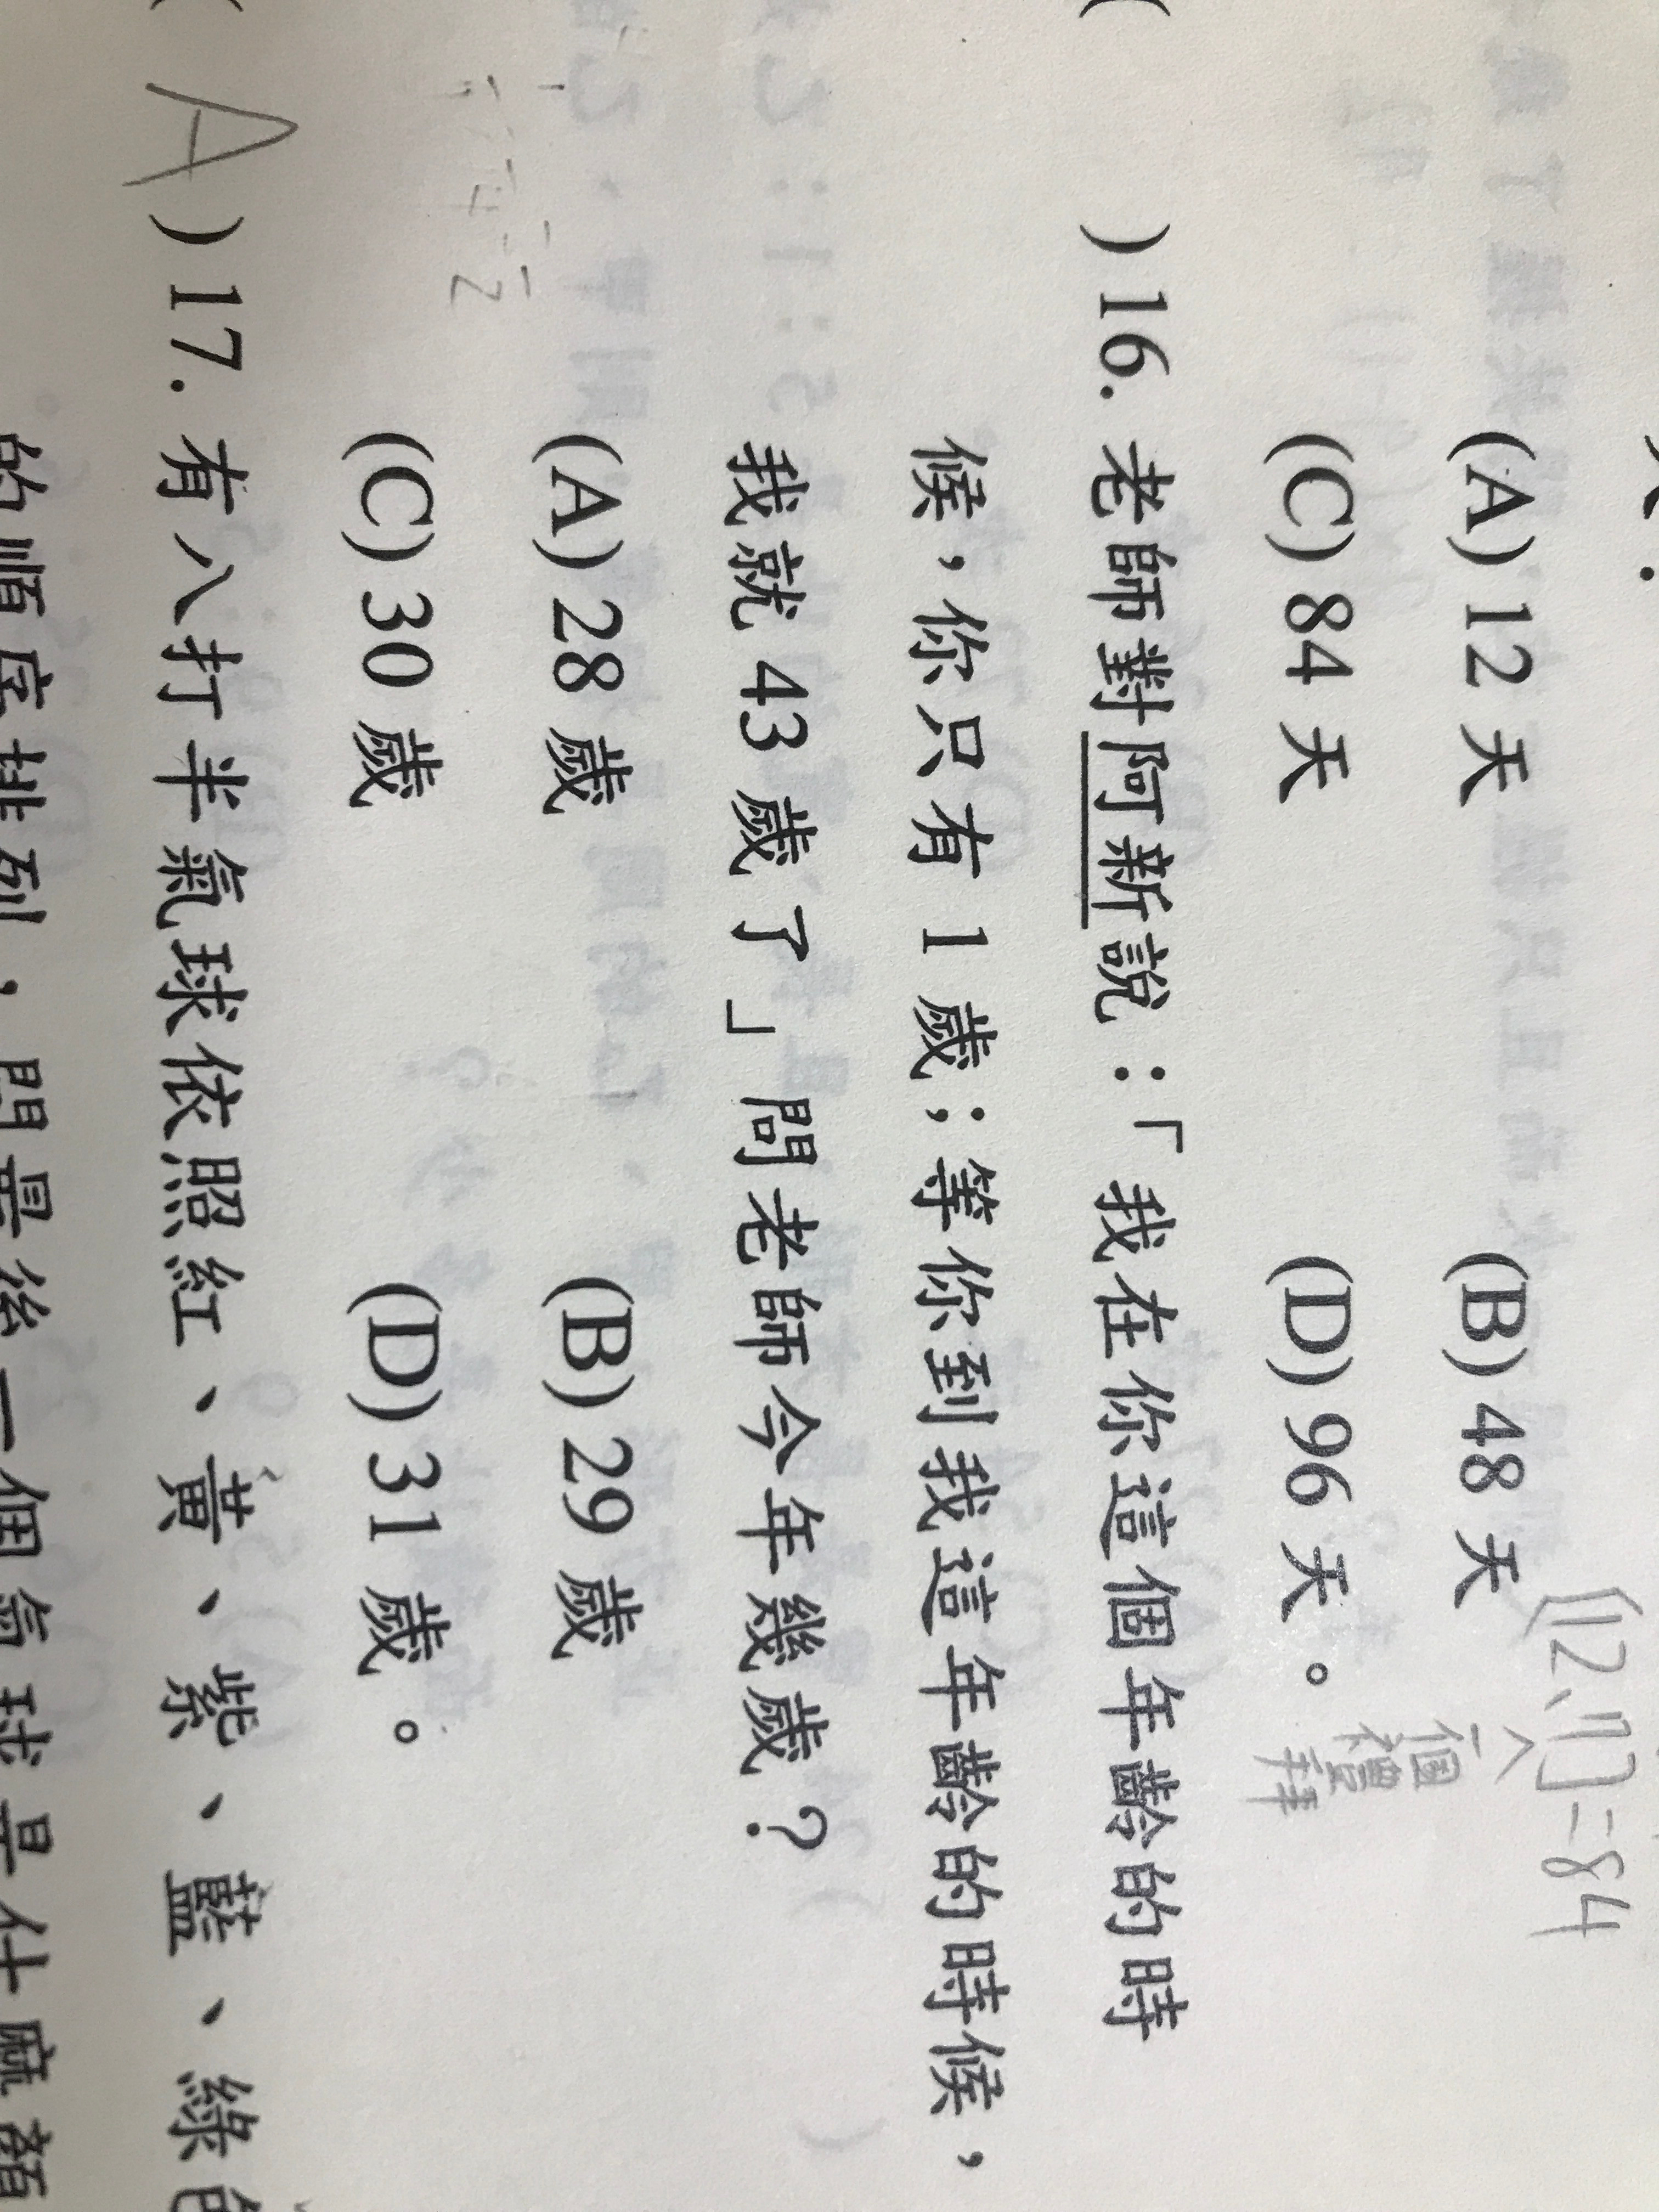 (A) 12 天 (B) 48 天
[12、7]=84
一個
禮
拜
(C) 84 天 (D) 96 天。
( )16. 老師對阿新說：「我在你這個年齡的時
候，你只有 1 歲；等你到我這年齡的時候，
我就 43 歲了」問老師今年幾歲？
(A) 28 歲 (B) 29 歲
(C) 30 歲 (D) 31 歲。
( A )17. 有八打半氣球依照紅、黃、紫、藍、綠的
的順序排列，問最後一個氣球是什麼顏